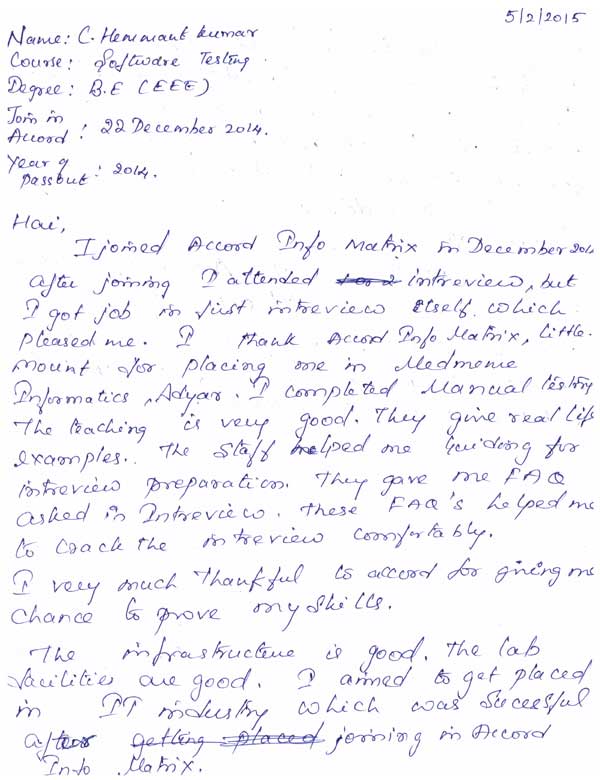 5/2/2015
Name: C. Hemmant kumar
Course: Software Testing
Degree: B.E (EEE)
Join in
Accord : 22 December 2014.
Year of
Passout : 2014.
Hai,
I joined Accord Info Matrix in December 201
After joining I attended intreview, but
I got job in first intreview itself which
pleased me. I thank Accord Info Matrix, Little-
mount for placing me in Medmeme
Informatics, Adyar. I completed Manual testing
The teaching is very good. They give real life
examples. The staff helped me guiding for
intreview preparation. They gave me FAQ
asked in Intreview. These FAQ's helped me
to crack the intreview comfortably.
I very much thankful to accord for giving me
chance to prove my skills.
The infrastructure is good. The lab
facilities are good. I aimed to get placed
in IT industry which was sucessful
after getting placed joining in Accord
Info Matrix.